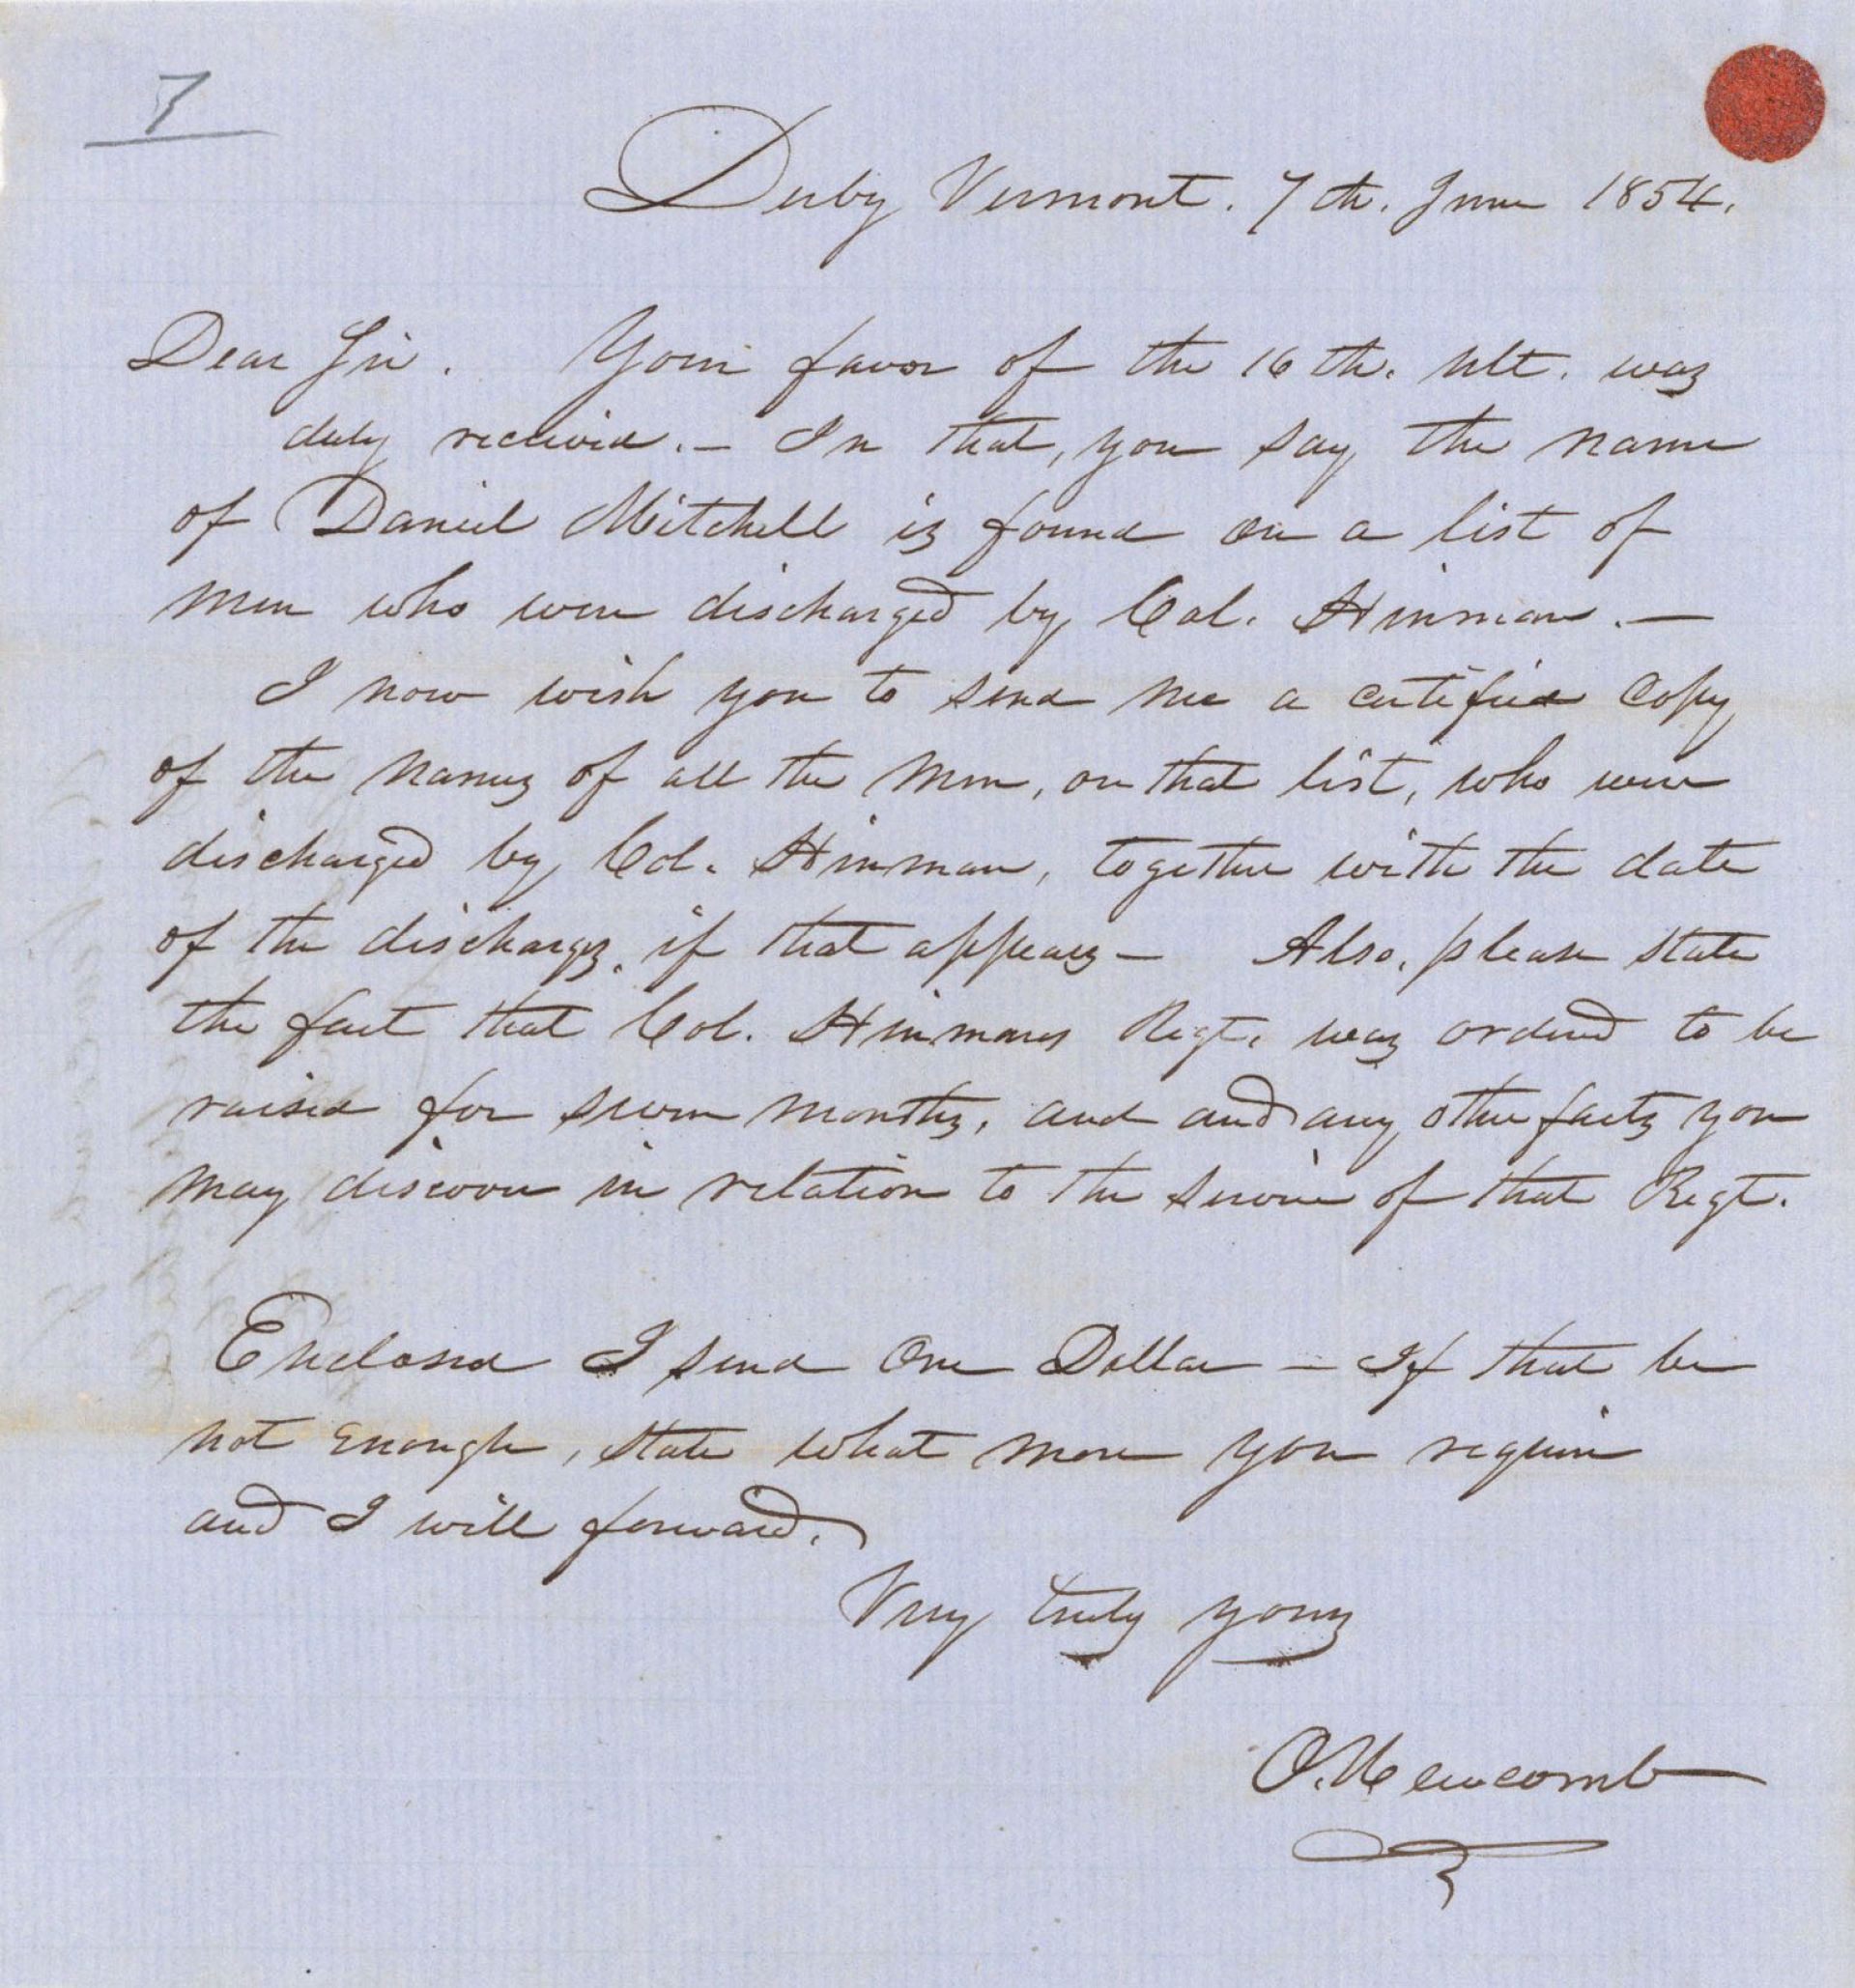 7
Derby Vermont. 7th. June 1854.
Dear Sir. Your favor of the 16th. ult. was
duly received. — In that, you say the name
of Daniel Mitchell is found on a list of
men who were discharged by Col. Hinman. —
I now wish you to send me a certified copy
of the names of all the men, on that list, who were
discharged by Col. Hinman, together with the date
of the discharges, if that appears — Also, please state
the fact that Col. Hinmans Regt. was ordered to be
raised for seven months, and and any other facts you
may discover in relation to the service of that Regt.
Enclosed I send One Dollar — If that be
not enough, state what more you require
and I will forward.
Very truly yours
O. Newcomb